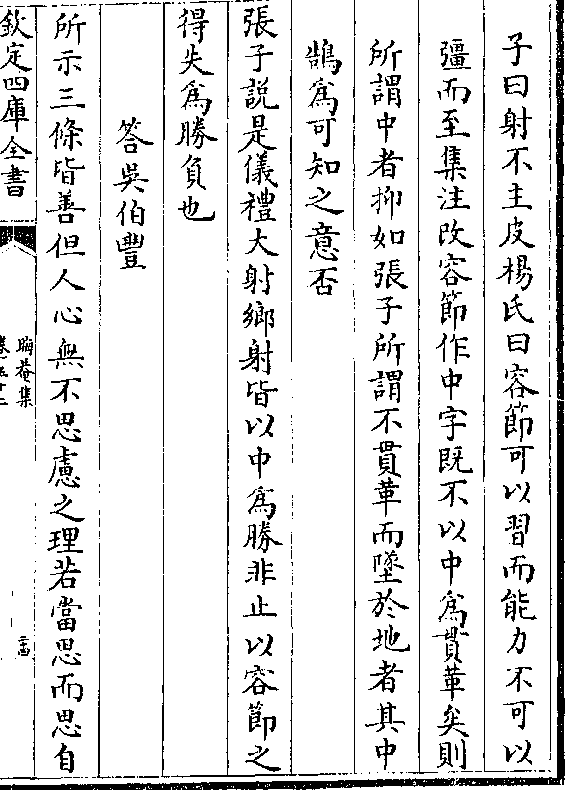 子曰射不主皮楊氏曰容節可以習而能力不可以
彊而至集注改容節作中字既不以中為貫革矣則
所謂中者抑如張子所謂不貫革而墜於地者其中
鵠為可知之意否
張子說是儀禮大射鄉射皆以中為勝非止以容節之
得失為勝負也
答吳伯豐
所示三條皆善但人心無不思慮之理若當思而思自
欽定四庫全書
晦菴集